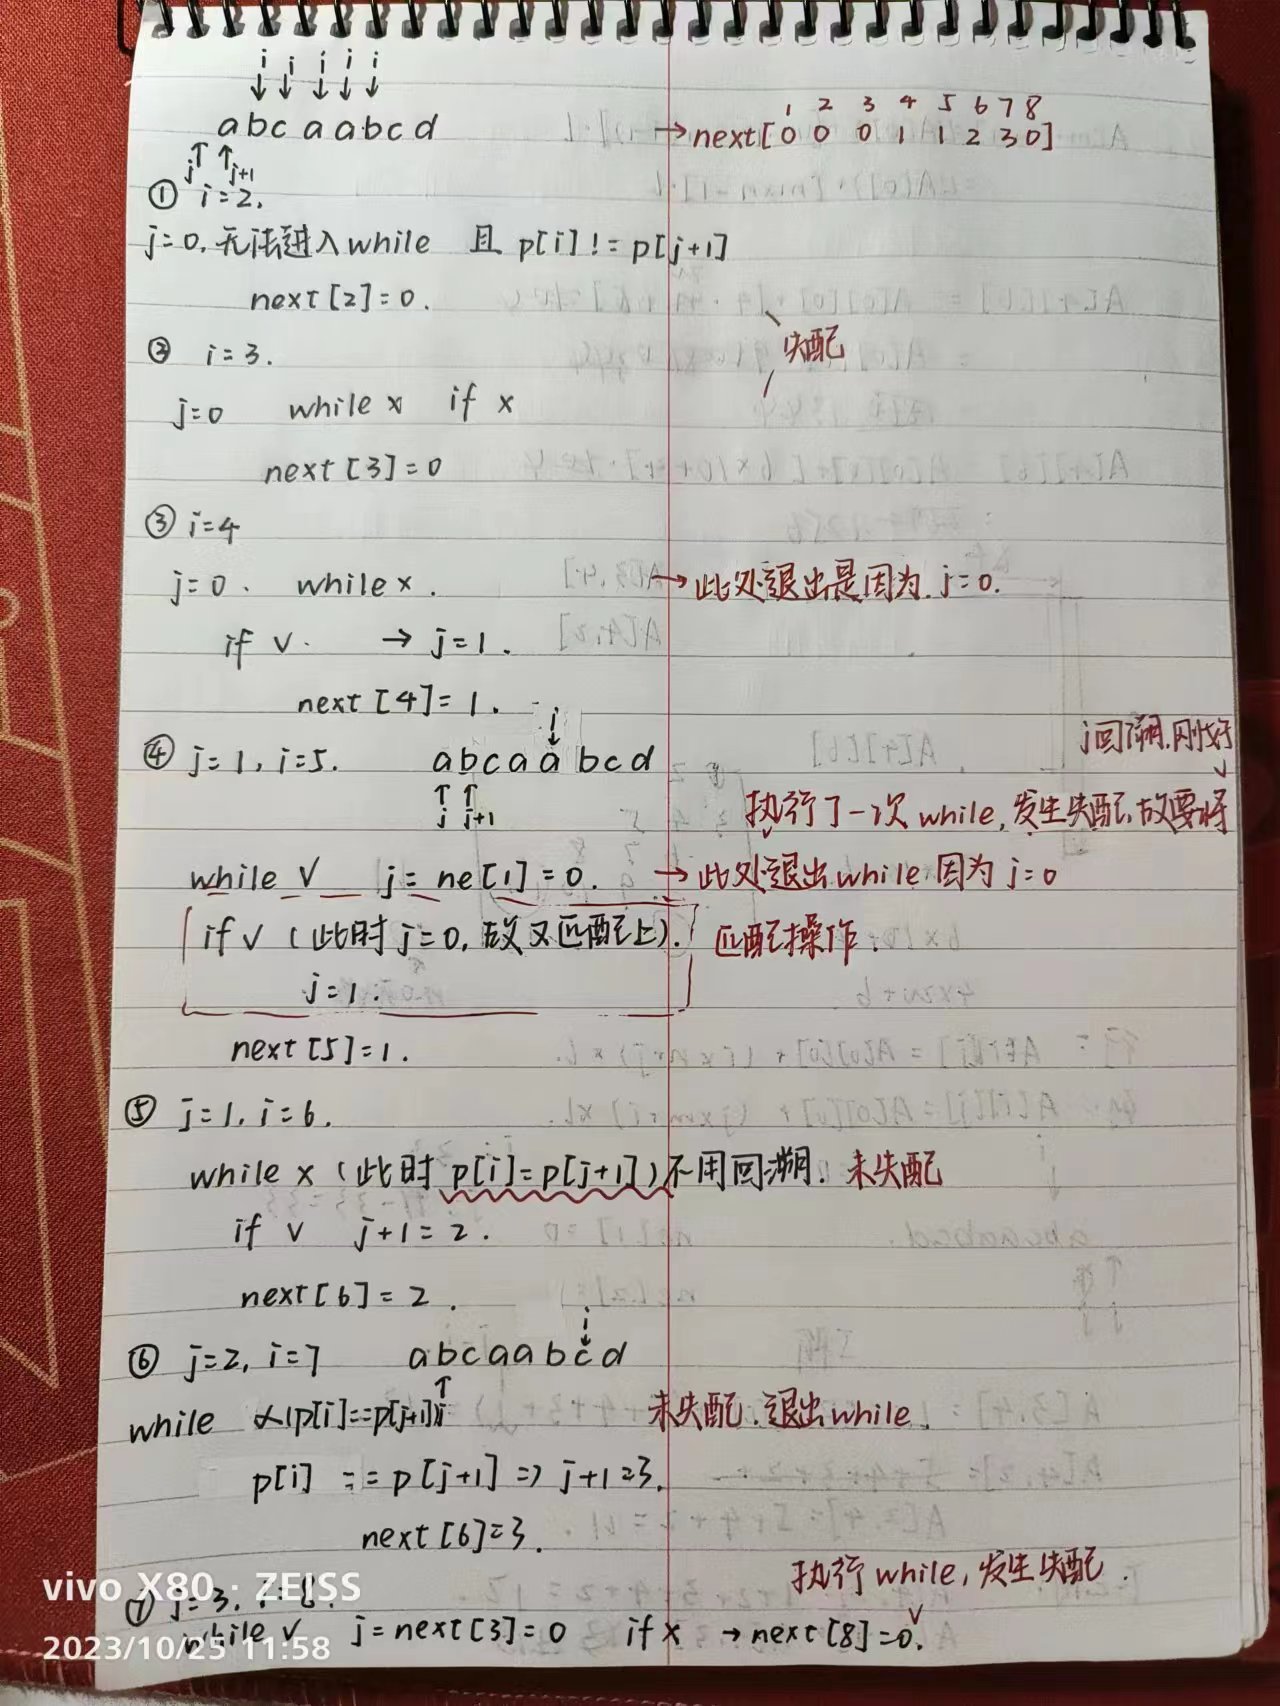 i i i i i
↓ ↓ ↓ ↓ ↓
abc aabcd
↑ ↑
j j+1
1 2 3 4 5 6 7 8
→next[0 0 0 1 1 2 3 0]
① i=2.
j=0,无法进入while 且 p[i]!=p[j+1]
next[2]=0.
② i=3.
失配
j=0 while x if x
next[3]=0
③ i=4
j=0. while x. →此处退出是因为.j=0.
if √. → j=1.
next[4]=1.
i
↓
④ j=1,i=5. abcaabcd
↑ ↑
j j+1
j回溯.刚好
↓
执行了一次while,发生失配,故要将
while √ j=ne[1]=0. →此处退出while因为j=0
if√(此时j=0,故又匹配上). 匹配操作.
j=1.
next[5]=1.
⑤ j=1,i=6.
while x(此时p[i]=p[j+1])不用回溯. 未失配
if √ j+1=2.
next[6]=2.
i
↓
⑥ j=2,i=7 abcaabcd
↑
j
while x(p[i]==p[j+1]) 未失配.退出while.
p[i]==p[j+1]=>j+1=3.
next[6]=3.
执行while,发生失配.
⑦ j=3.i=8.
while √ j=next[3]=0 if x →next[8]=0.
vivo X80 · ZEISS
2023/10/25 11:58